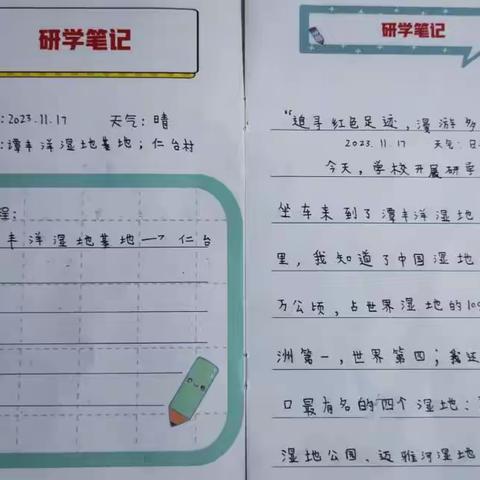 研学笔记
:2023.11.17 天气:晴
:谭丰洋湿地基地;仁台村
程:
丰洋湿地基地一→仁台
研学笔记
“追寻红色足迹,漫游多
2023.11.17 天气:
今天,学校开展研学
坐车来到了谭丰洋湿地
里,我知道了中国湿地
万公顷,占世界湿地的10
洲第一,世界第四;我还
口最有名的四个湿地:
湿地公园、迈雅河湿地